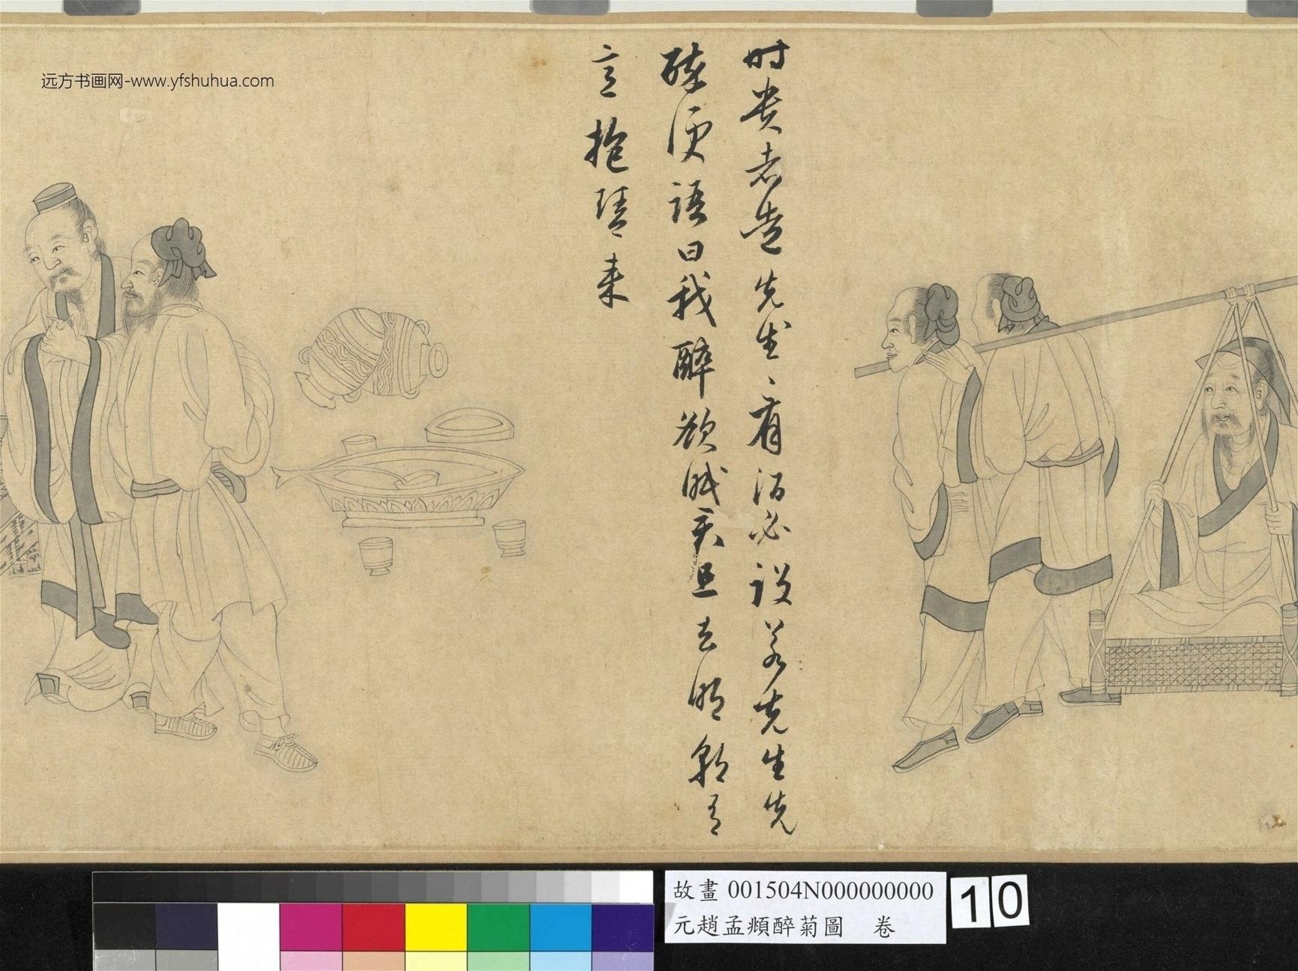 远方书画网-www.yfshuhua.com
时贵者造先生有酒必設若先生先
醉便語曰我醉欲眠君且去明朝有
意抱琴来
故畫 001504N000000000
元趙孟頫醉菊圖 卷
10